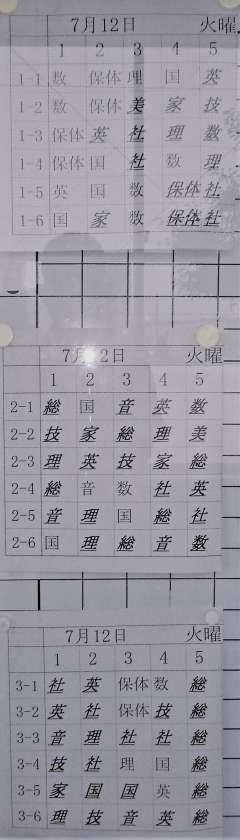 7月12日 火曜
1 2 3 4 5
1-1 数 保体 理 国 英
1-2 数 保体 美 家 技
1-3 保体 英 社 理 数
1-4 保体 国 社 数 理
1-5 英 国 数 保体 社
1-6 国 家 数 保体 社
7月12日 火曜
1 2 3 4 5
2-1 総 国 音 英 数
2-2 技 家 総 理 美
2-3 理 英 技 家 総
2-4 総 音 数 社 英
2-5 音 理 国 総 社
2-6 国 理 総 音 数
7月12日 火曜
1 2 3 4 5
3-1 社 英 保体 数 総
3-2 英 社 保体 技 総
3-3 音 理 社 社 総
3-4 技 社 理 国 総
3-5 家 国 国 英 総
3-6 理 技 音 英 総